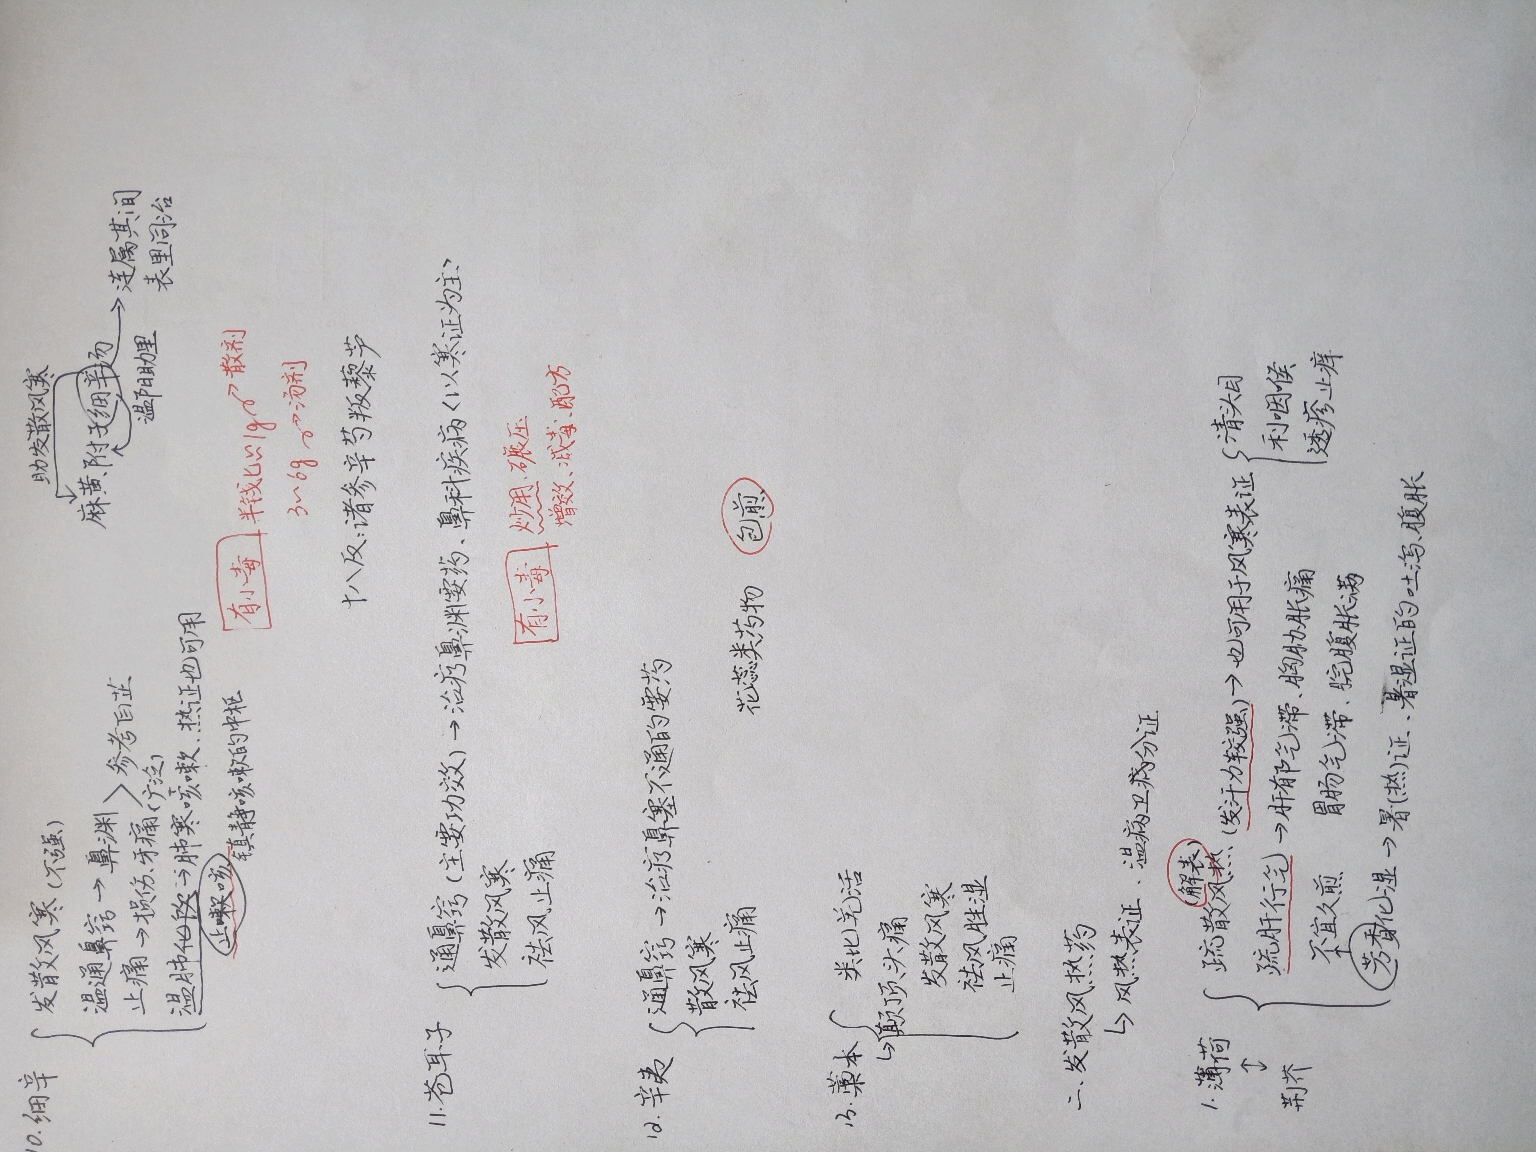 10. 细辛
发散风寒(不强)
温通鼻窍→鼻渊
止痛→损伤、牙痛(广泛)
参考白芷
温肺化饮→肺寒咳嗽、热证也可用
止嗽咳
镇静咳嗽的中枢
助发散风寒
麻黄附子细辛汤→连属其间
表里同治
温阳助里
有小毒
半钱匕≈1g 散剂
3~6g 汤剂
十八反:诸参辛芍叛藜芦
11. 苍耳子
通鼻窍(主要功效)→治疗鼻渊要药、鼻科疾病<以寒证为主>
发散风寒
祛风止痛
有小毒
炒用、碾压
增效、减毒、配方
12. 辛夷
通鼻窍→治疗鼻塞不通的要药
散风寒
祛风止痛
花蕊类药物
包煎
13. 藁本
类比羌活
↳颠顶头痛
发散风寒
祛风胜湿
止痛
二. 发散风热药
↳风热表证、温病卫分证
1. 薄荷
↕
荆芥
(解表)
疏散风热(发汗力较强)→也可用于风寒表证
清头目
利咽喉
透疹止痒
疏肝行气→肝郁气滞、胸胁胀痛
胃肠气滞、脘腹胀满
不宜久煎
芳香化湿→暑(热)证、暑湿证的吐泻、腹胀